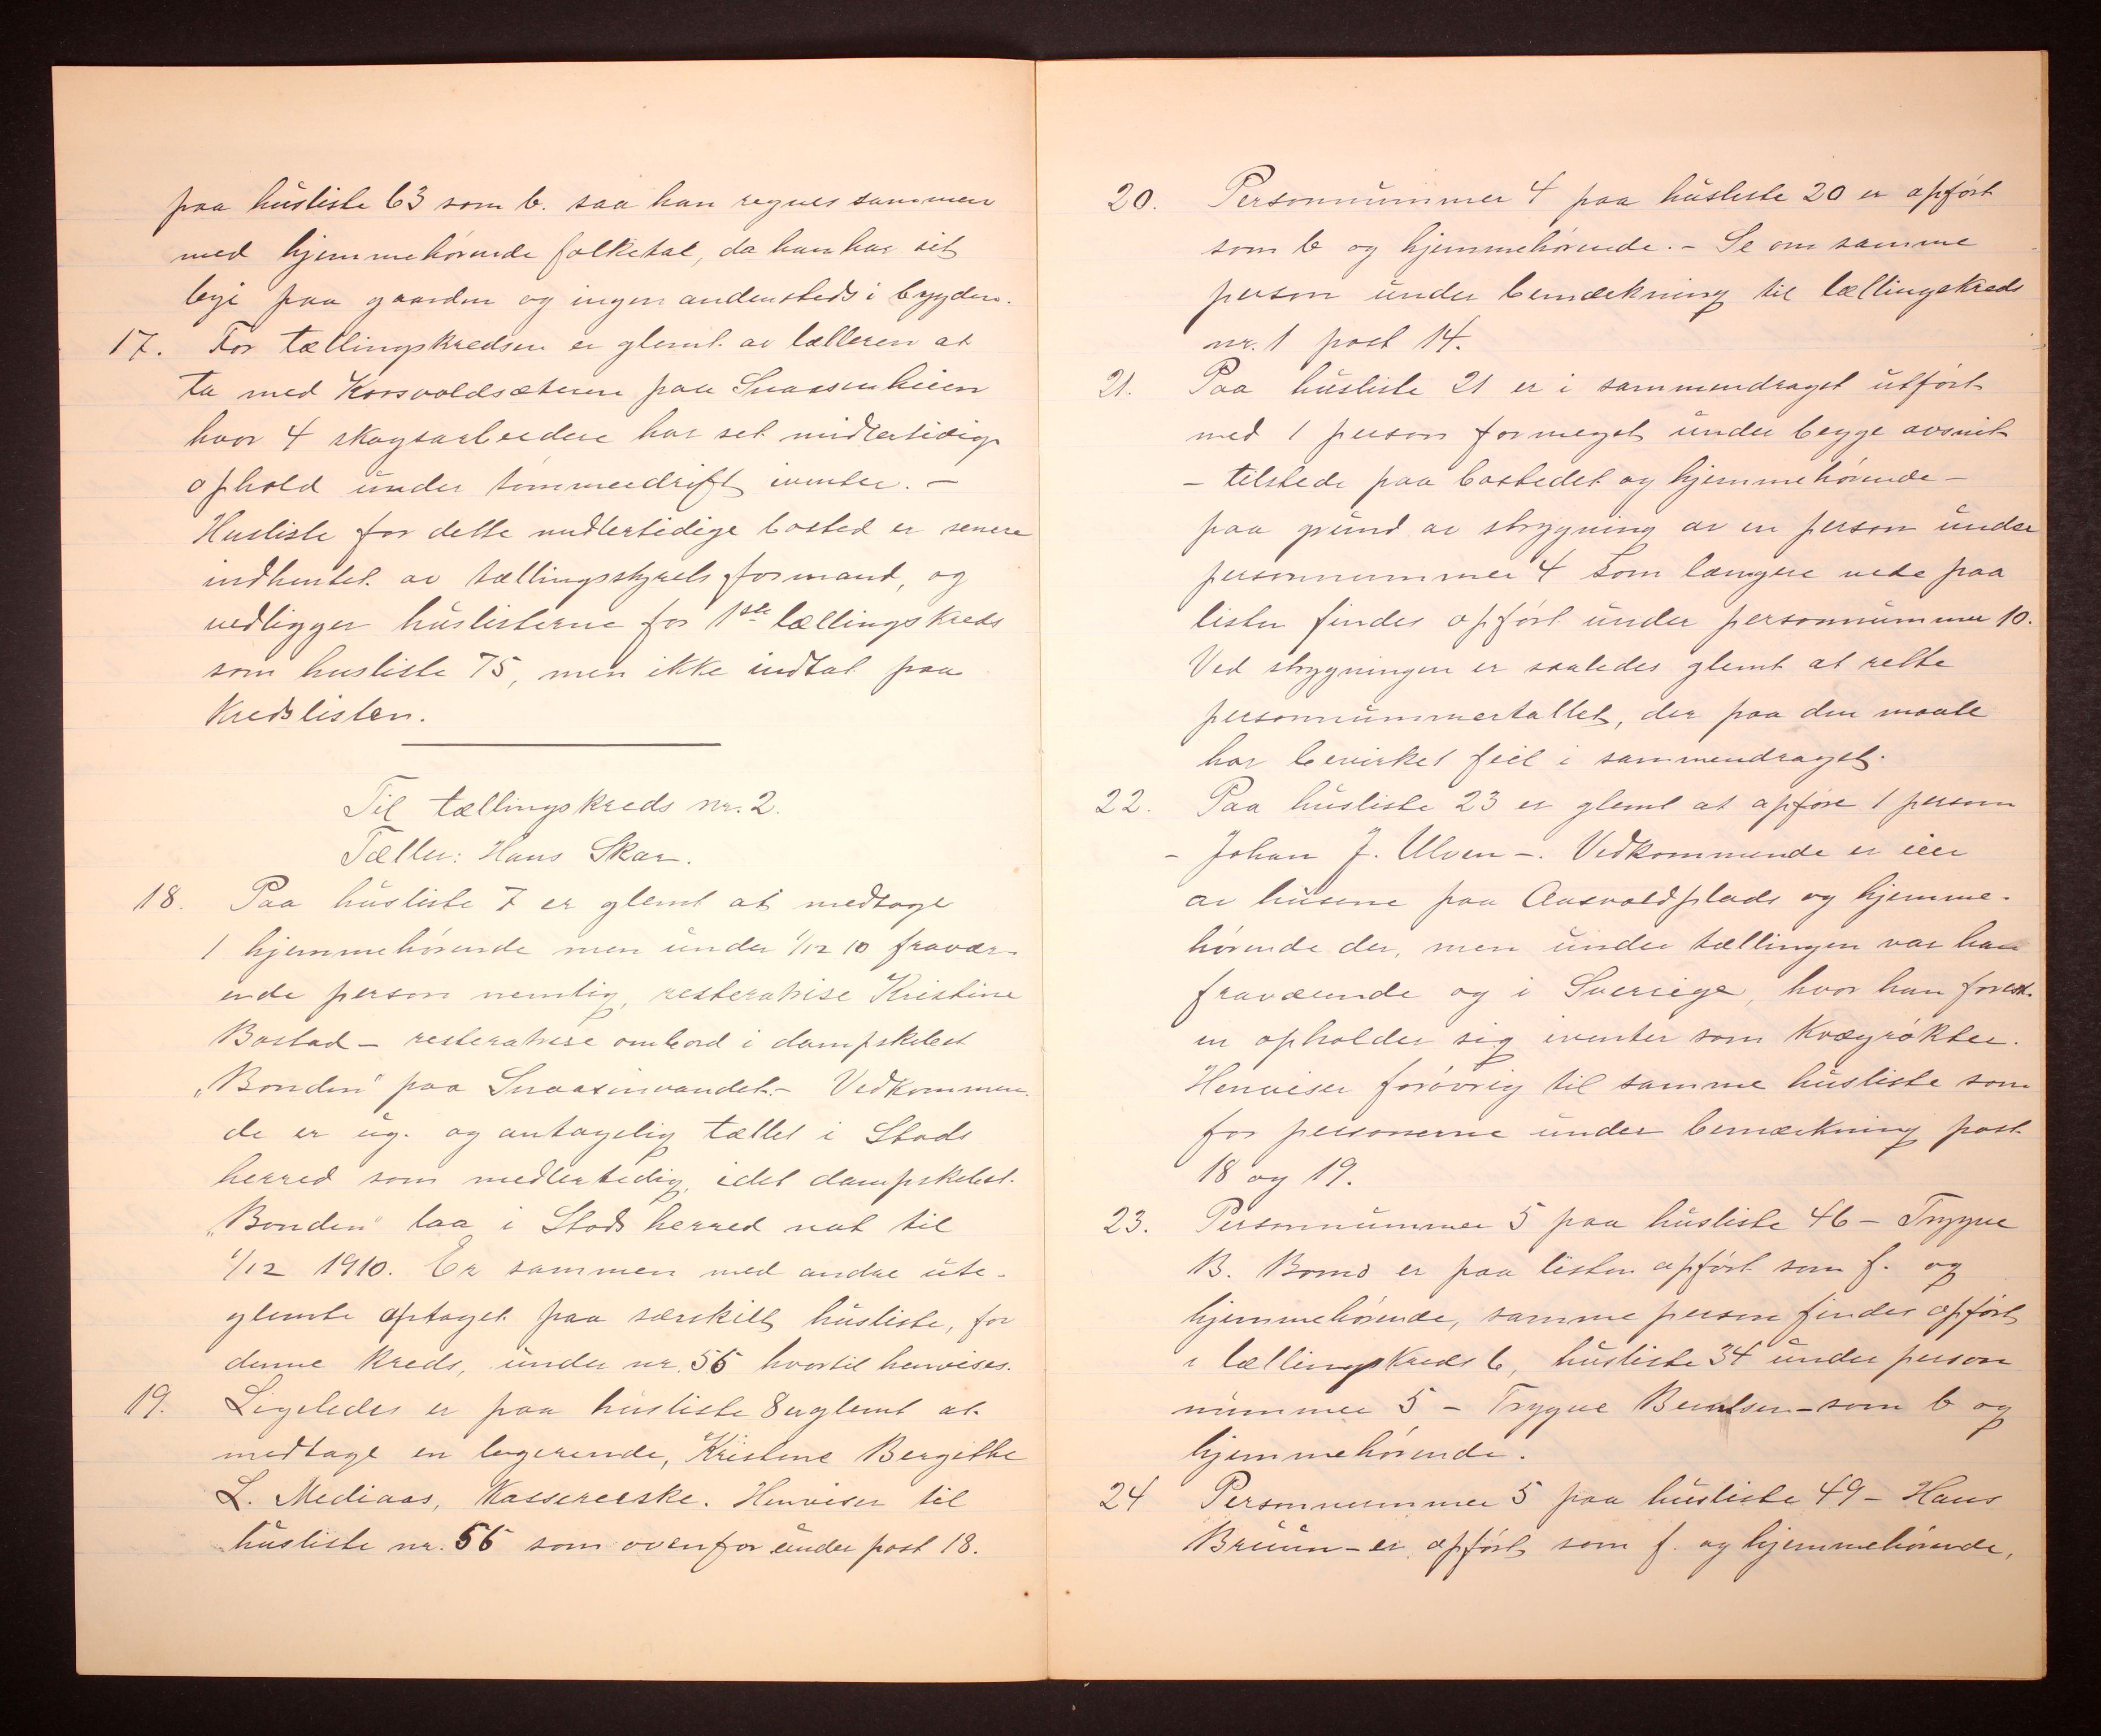 paa husliste 63 som b. saa han regnes sammen
med hjemmehörende folketal, da han har sit
leje paa gaarden og ingen andensteds i bygden.
17. For tællingskredsen er glemt av tælleren at
ta med Korsvoldsæteren paa Snaasenheien
hvor 4 skogsarbeidere har set midlertidig
ophold under tömmerdrift ivinter. –
Husliste for dette midlertidige bosted er senere
indhentet av tællingsstyrets formand, og
vedligger huslisterne for 1ste tællingskreds
som husliste 75, men ikke indtat paa
Kredslisten.
Til tællingskreds nr. 2.
Tæller: Hans Skar.
18. Paa husliste 7 er glemt at medtage
1 hjemmehörende men under 1/12 10 fravær-
ende person nemlig, restoratrise Kristine
Bostad – restoratrise ombord i dampskibet
„Bonden" paa Snaasenvandet. – Vedkommen-
de er ug. og antagelig tællet i Stods
herred som midlertidig, idet dampskibet
„Bonden" laa i Stods herred nat til
1/12 1910. Er sammen med andre ute-
glemte optaget paa særskilt husliste, for
denne Kreds, under nr. 56 hvortil henvises.
19. Ligeledes er paa husliste 8 erglemt at
medtage en logerende, Kristine Bergitte
L. Mediaas, Kassererske. Henviser til
husliste nr. 56 som ovenfor under post 18.
20. Personnummer 4 paa husliste 20 er opfört
som b og hjemmehörende. – Se om samme
person under bemærkning til tællingskreds
nr. 1 post 14.
21. Paa husliste 21 er i sammendraget utfört
med 1 person formeget under begge avsnit
– tilstede paa bostedet og hjemmehörende –
paa grund av strygning av en person under
personnummer 4 som længere nede paa
listen findes opfört under personnummer 10.
Ved strygningen er saaledes glemt at rette
personnummertallet, der paa den maate
har bevirket feil i sammendraget.
22. Paa husliste 23 er glemt at opföre 1 person
– Johan J. Ulven –. Vedkommende er eier
av husene paa Aasvoldplads og hjemme-
hörende der, men under tællingen var han
fraværende og i Sverrige, hvor han forest-
en opholder sig ivinter som Kvægrökter.
Henviser forövrig til samme husliste som
for personerne under bemærkning post
18 og 19.
23. Personnummer 5 paa husliste 46 – Trygve
B. Bomo er paa listen opfört som f. og
hjemmehörende, samme person findes opfört
i tællingskreds 6, husliste 34 under person
nummer 5 – Trygve Berntsen – som b og
hjemmehörende.
24 Personnummer 5 paa husliste 49 – Hans
Bruun – er opfört som f. og hjemmehörende,